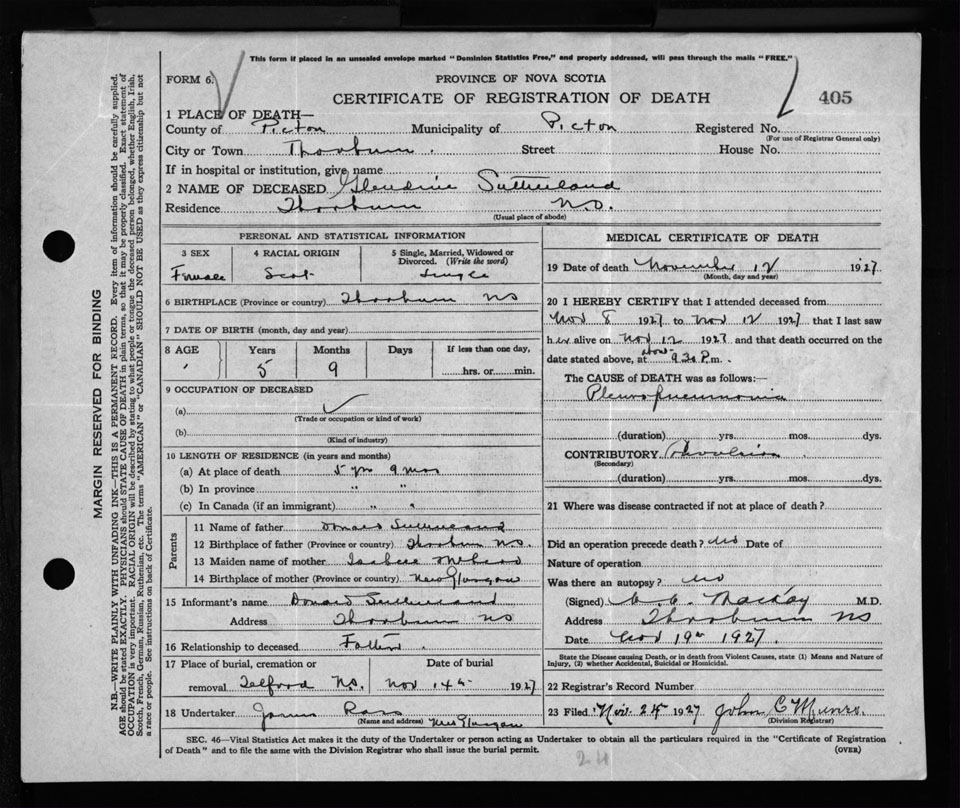 This form if placed in an unsealed envelope marked "Dominion Statistics Free," and properly addressed, will pass through the mails "FREE."
FORM 6.
PROVINCE OF NOVA SCOTIA
CERTIFICATE OF REGISTRATION OF DEATH
405
1 PLACE OF DEATH—
County of Picton Municipality of Picton Registered No.
(For use of Registrar General only)
City or Town Thorburn. Street House No.
If in hospital or institution, give name
2 NAME OF DECEASED Glendine Sutherland
Residence Thorburn N.S.
(Usual place of abode)
PERSONAL AND STATISTICAL INFORMATION
3 SEX 4 RACIAL ORIGIN 5 Single, Married, Widowed or Divorced. (Write the word)
Female Scot Single
6 BIRTHPLACE (Province or country) Thorburn NS
7 DATE OF BIRTH (month, day and year)
8 AGE Years Months Days If less than one day,
5 9 hrs. or min.
9 OCCUPATION OF DECEASED
(a) ✓
(Trade or occupation or kind of work)
(b)
(Kind of industry)
10 LENGTH OF RESIDENCE (in years and months)
(a) At place of death 5 yrs 9 mos
(b) In province " "
(c) In Canada (if an immigrant) " "
Parents
11 Name of father Donald Sutherland
12 Birthplace of father (Province or country) Thorburn N.S.
13 Maiden name of mother
14 Birthplace of mother (Province or country) New Glasgow
15 Informant's name Donald Sutherland
Address Thorburn NS
16 Relationship to deceased Father.
17 Place of burial, cremation or Date of burial
removal Telford N.S. Nov 14th 1927
18 Undertaker James Ross
(Name and address) New Glasgow
MEDICAL CERTIFICATE OF DEATH
19 Date of death November 12 1927
(Month, day and year)
20 I HEREBY CERTIFY that I attended deceased from
Nov 8 1927 to Nov 12 1927 that I last saw
her alive on Nov 12 1927 and that death occurred on the
date stated above, at about 9.30 P.m.
The CAUSE of DEATH was as follows:—
Pleuro pneumonia
(duration) yrs. mos. dys.
CONTRIBUTORY
(Secondary)
(duration) yrs. mos. dys.
21 Where was disease contracted if not at place of death?
Did an operation precede death? No Date of
Nature of operation
Was there an autopsy? No
(Signed) MacKay M.D.
Address Thorburn NS
Date Nov 19th 1927.
State the Disease causing Death, or in death from Violent Causes, state (1) Means and Nature of
Injury, (2) whether Accidental, Suicidal or Homicidal.
22 Registrar's Record Number
23 Filed Nov. 24 1927 John C Munro.
(Division Registrar)
SEC. 46—Vital Statistics Act makes it the duty of the Undertaker or person acting as Undertaker to obtain all the particulars required in the "Certificate of Registration
of Death" and to file the same with the Division Registrar who shall issue the burial permit. (OVER)
24
MARGIN RESERVED FOR BINDING
N.B.—WRITE PLAINLY WITH UNFADING INK—THIS IS A PERMANENT RECORD. Every item of information should be carefully supplied.
AGE should be stated EXACTLY. PHYSICIANS should STATE CAUSE OF DEATH in plain terms, so that it may be properly classified. Exact statement of
OCCUPATION is very important. RACIAL ORIGIN will be described by stating to what people or tongue the deceased person belonged, whether English, Irish,
Scotch, French, German, Russian, Ruthenian, etc. The terms "AMERICAN" or "CANADIAN" SHOULD NOT BE USED as they express citizenship but not
a race or people. See instructions on back of Certificate.